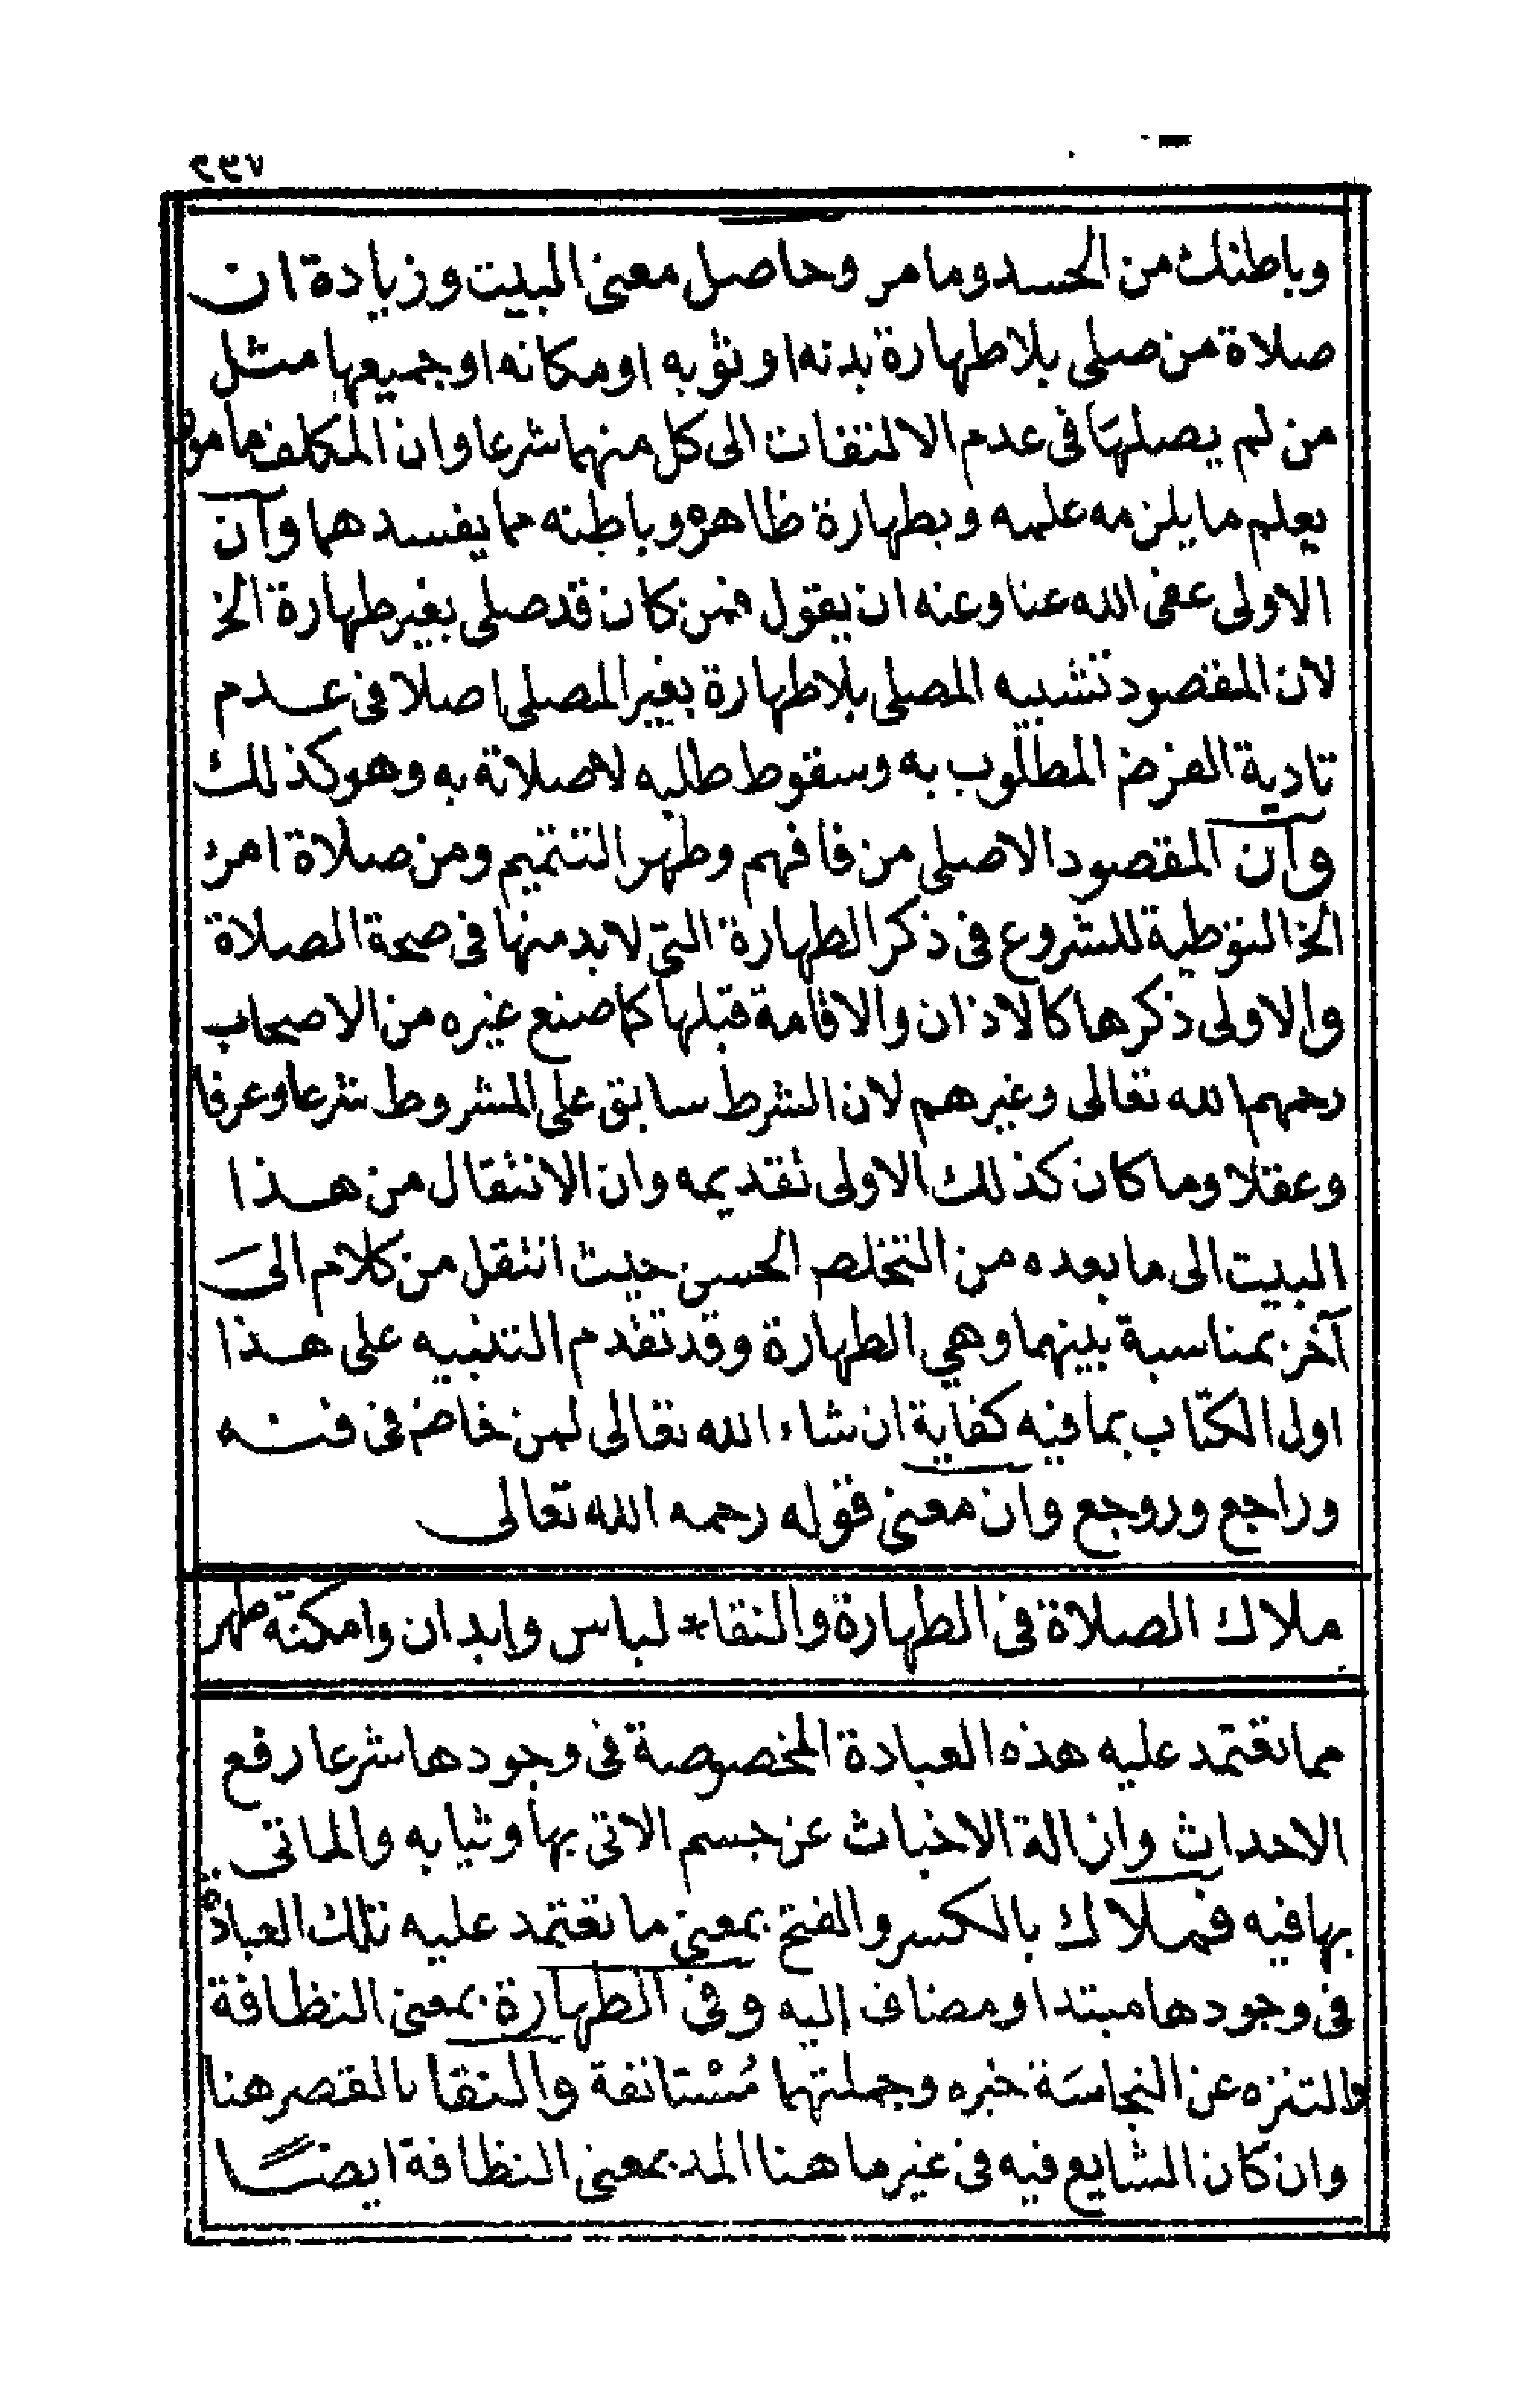 ٢٣٧
وباطنك من الحسد وما مر وحاصل معنى البيت وزيادة ان
صلاة من صلى بلا طهارة بدنه او ثوبه او مكانه او جميعها مثل
من لم يصلها فى عدم الالتفات الى كل منهما شرعا وان المكلف مامور
يعلم ما يلزمه علمه وبطهارة ظاهره وباطنه مما يفسدهما وآن
الاولى عفى الله عنا وعنه ان يقول فمن كان قد صلى بغير طهارة الخ
لان المقصود تشبيه المصلى بلا طهارة بغير المصلى اصلا فى عدم
تادية الفرض المطلوب به وسقوط طلبه لا صلاته به وهو كذلك
وآن المقصود الاصلى من فافهم وطهر التتميم ومن صلاة امرئ
الخ التوطية للشروع فى ذكر الطهارة التى لا بد منها فى صحة الصلاة
والاولى ذكرها كالاذان والاقامة قبلها كما صنع غيره من الاصحاب
رحمهم الله تعالى وغيرهم لان الشرط سابق على المشروط شرعا وعرفا
وعقلا وما كان كذلك الاولى تقديمه وان الانتقال من هذا
البيت الى ما بعده من التخلص الحسن حيث انتقل من كلام الى
آخر بمناسبة بينهما وهي الطهارة وقد تقدم التنبيه على هذا
اول الكتاب بما فيه كفاية ان شاء الله تعالى لمن خاض فى فنه
وراجع وروجع وان معنى قوله رحمه الله تعالى
ملاك الصلاة فى الطهارة والنقا * لباس وابدان وامكنة طهر
مما تعتمد عليه هذه العبادة المخصوصة فى وجودها شرعا رفع
الاحداث وازالة الاخباث عن جسم الاتى بها وثيابه والماتى
بها فيه فملاك بالكسر والفتح بمعنى ما تعتمد عليه تلك العبادة
فى وجودها مبتدا ومضاف إليه وفى الطهارة بمعنى النظافة
والتنزه عن النجاسة خبره وجملتهما مُسْتانفة والنقا بالقصر هنا
وان كان الشايع فيه فى غير ما هنا المد بمعنى النظافة ايضًا